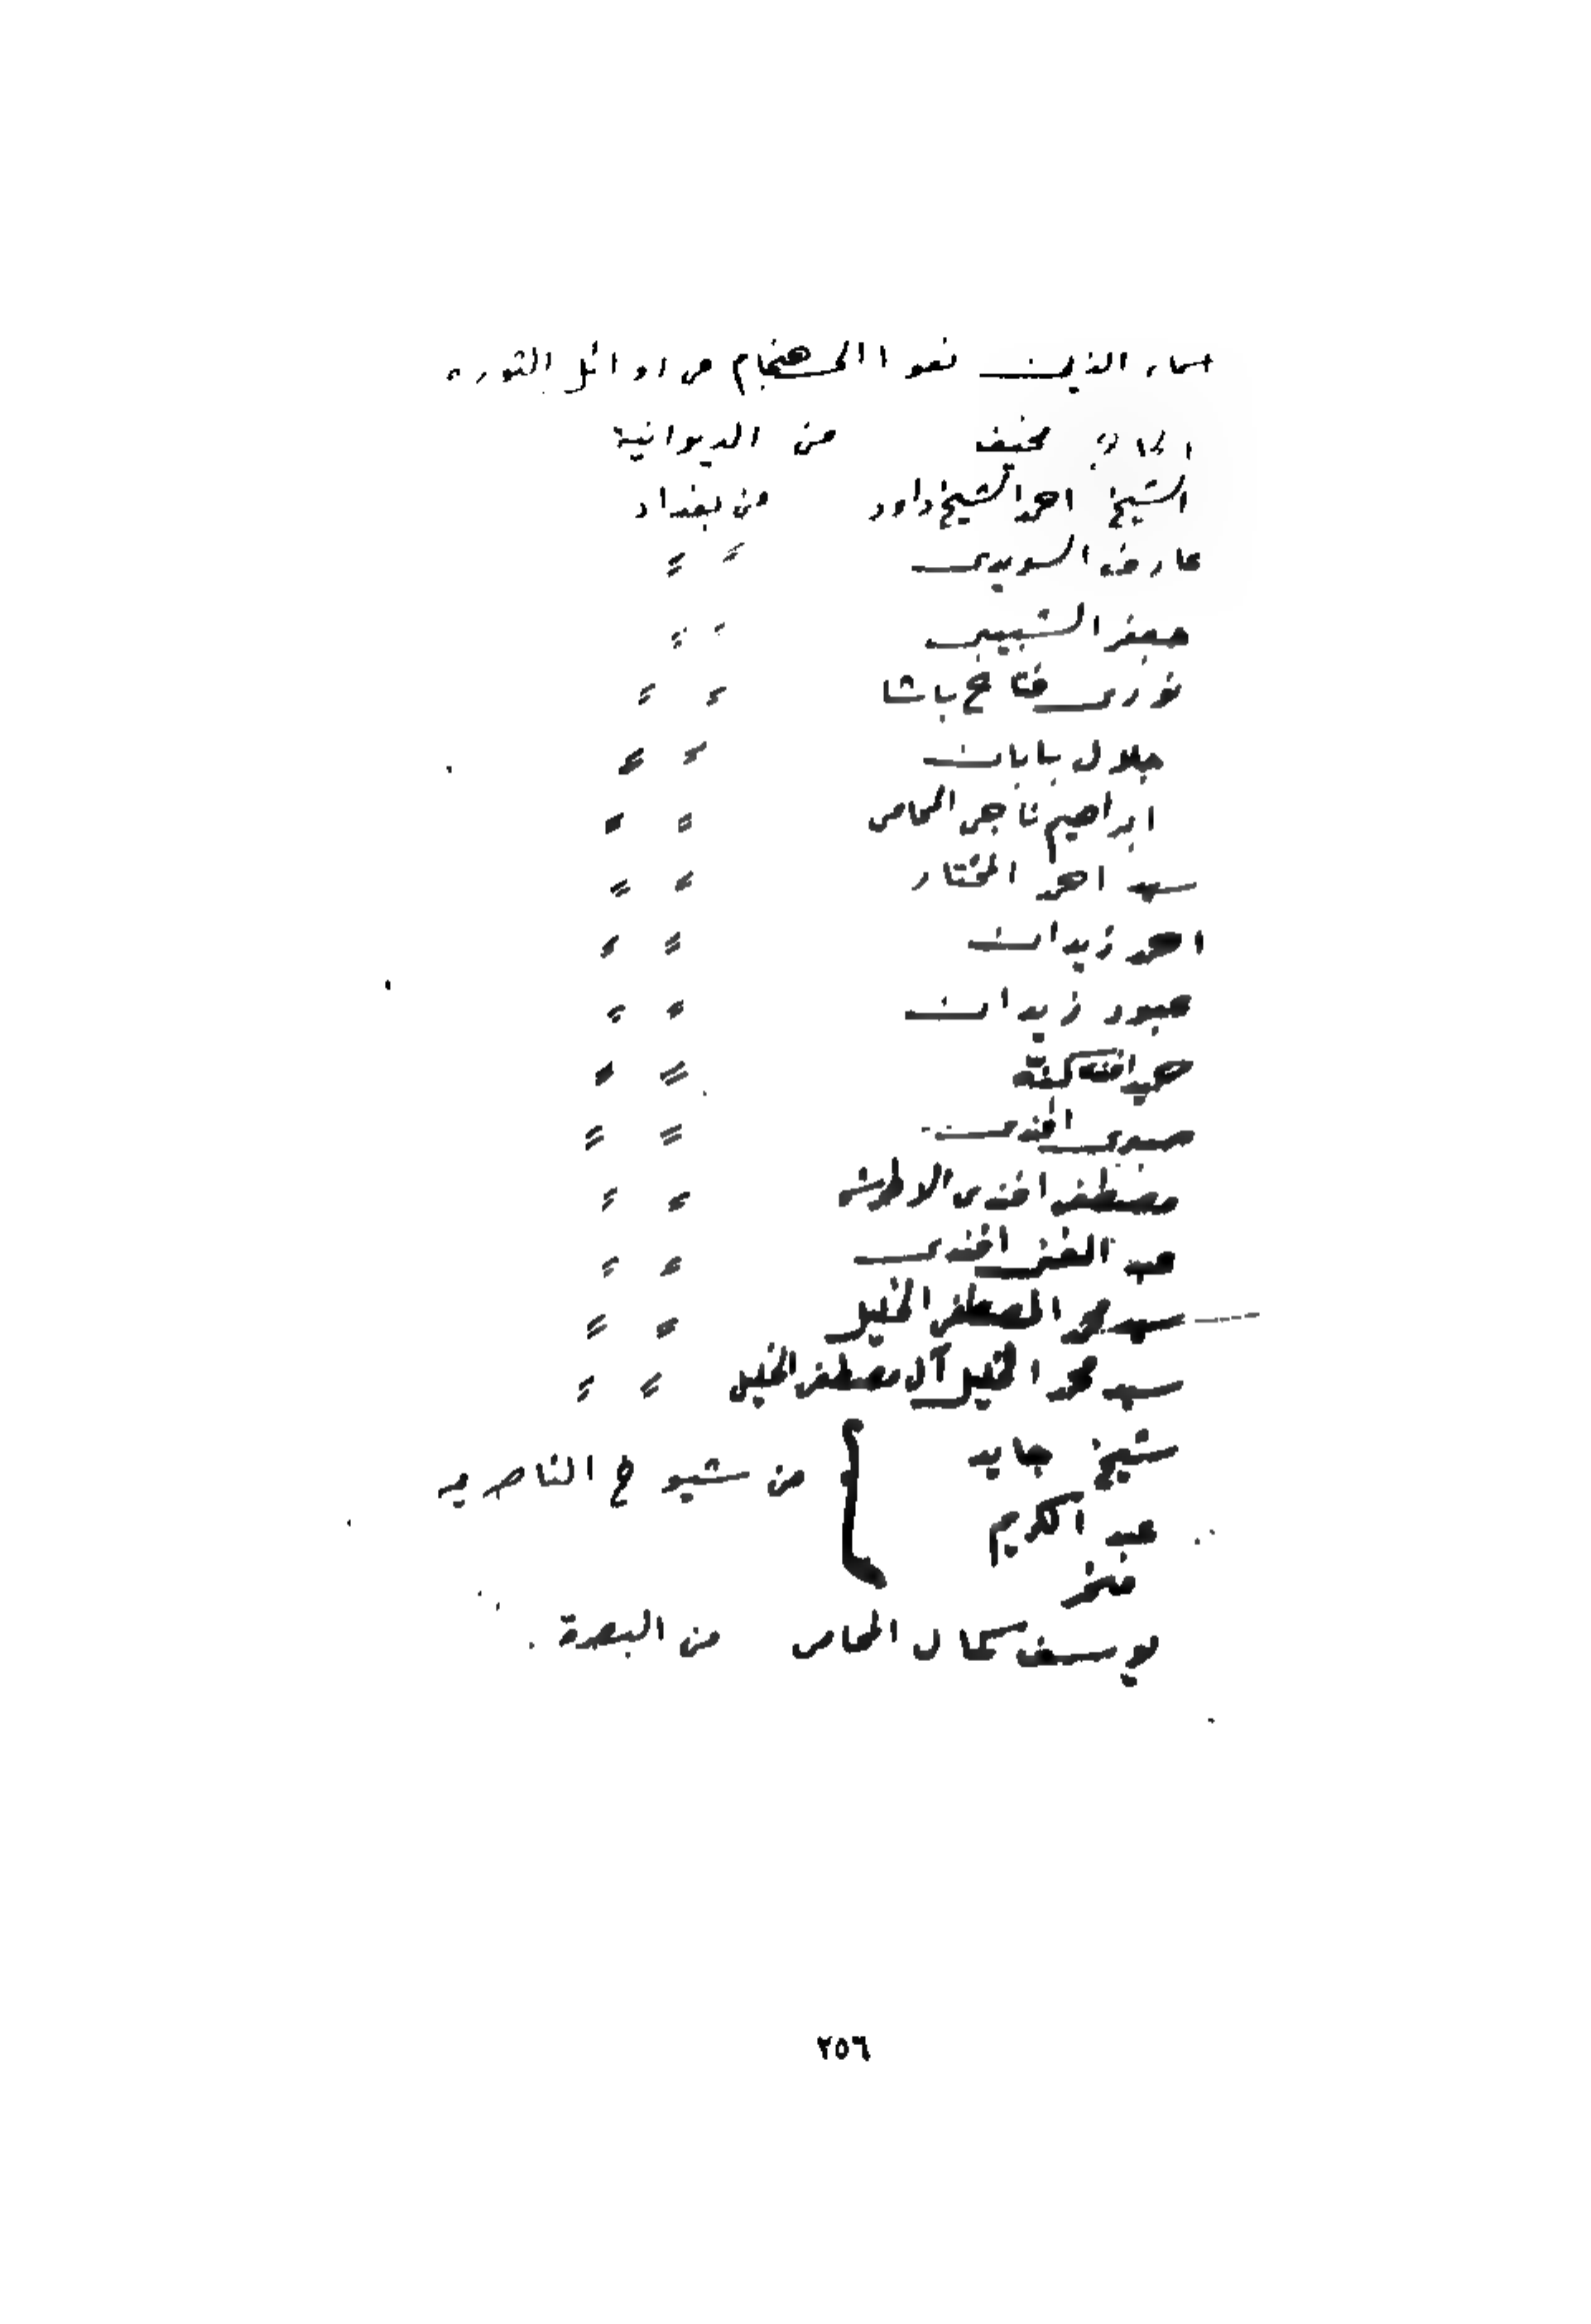 اسماء الذين نفوا الى هنجام من اوائل الثوره
الحاج مخيف من الديوانية
الشيخ احمد الشيخ داود من بغداد
عارف السويدي " "
جعفر الشبيبي " "
نوري فتاح باشا " "
جلال بابان " "
ابراهيم ناجي المحامي " "
سيد احمد المختار " "
احمد زيدان " "
عبود زيدان " "
حميد افندي كنه " "
صبري افندي " "
مصطفى افندي الاطرش " "
عبد الغني افندي " "
سيد محمد المصطفى الخليل " "
سيد محمود الخليل آل مصطفى الخليل " "
شيخ جايد
من شيوخ الناصريه
عبد الكريم
يوسف كمال المحامي من البصرة
٢٥٦